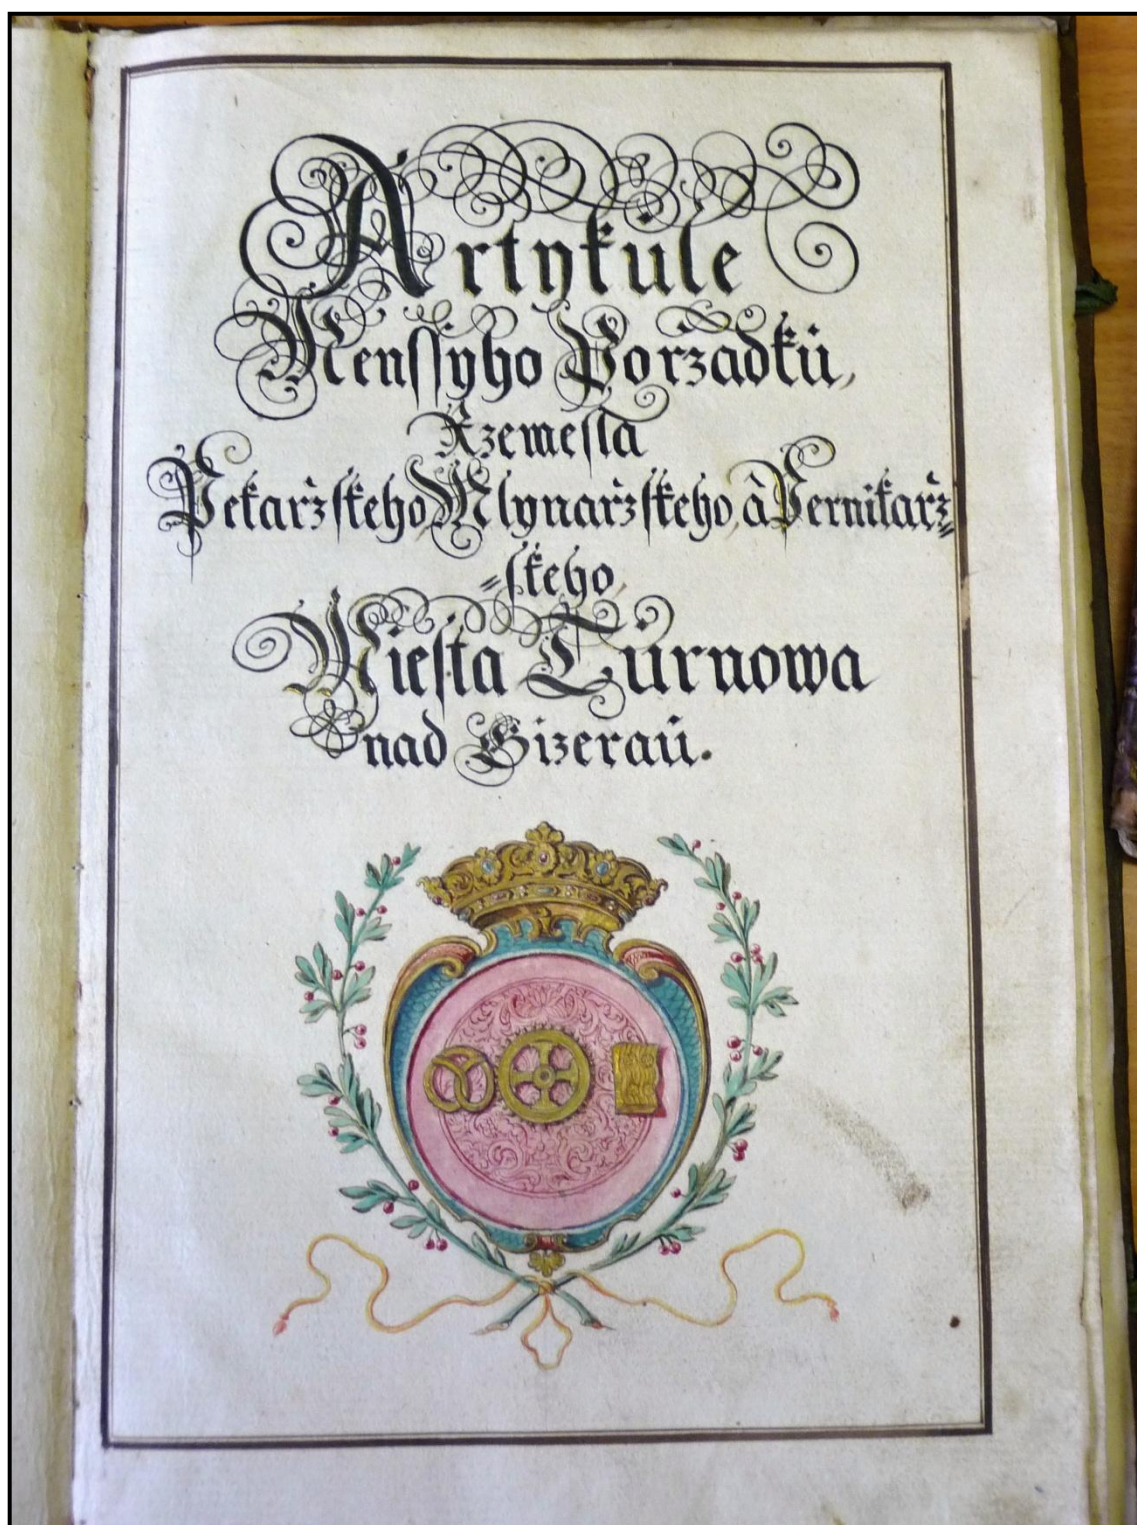 Artykůle
Menſſyho Porzadků,
Rzemeſla
Pekařzſkeho, Mlynařzſkeho, â Pernikařz⸗
⸗ſkeho,
Mieſta Tůrnowa
nad Gizeraů.